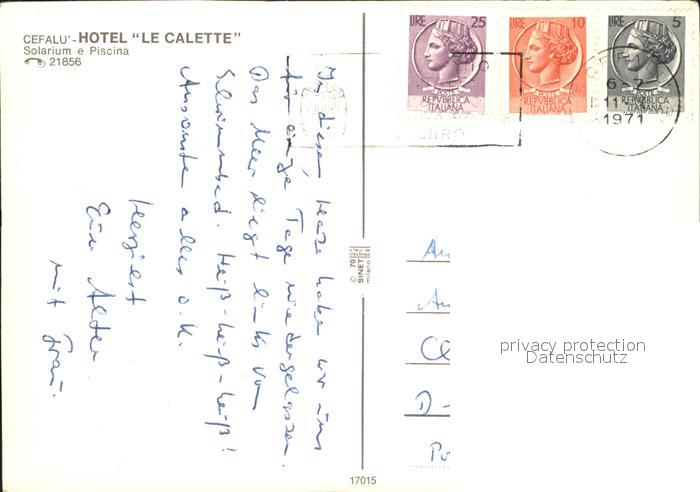 CEFALU'-HOTEL "LE CALETTE"
Solarium e Piscina
21856
LIRE 25
POSTE
REPVBBLICA
ITALIANA
LIRE 10
POSTE
REPVBBLICA
ITALIANA
LIRE 5
POSTE
REPVBBLICA
ITALIANA
6-7
11
1971
In diesem Hause haben wir uns
für einige Tage niedergelassen.
Das Meer liegt links vom
Schwimmbad. Heiß-heiß-heiß!
Ansonsten alles o.k.
Herzlichst
Euer Alter
mit Frau.
© 70
SINET
milano
An
D-
privacy protection
Datenschutz
17015